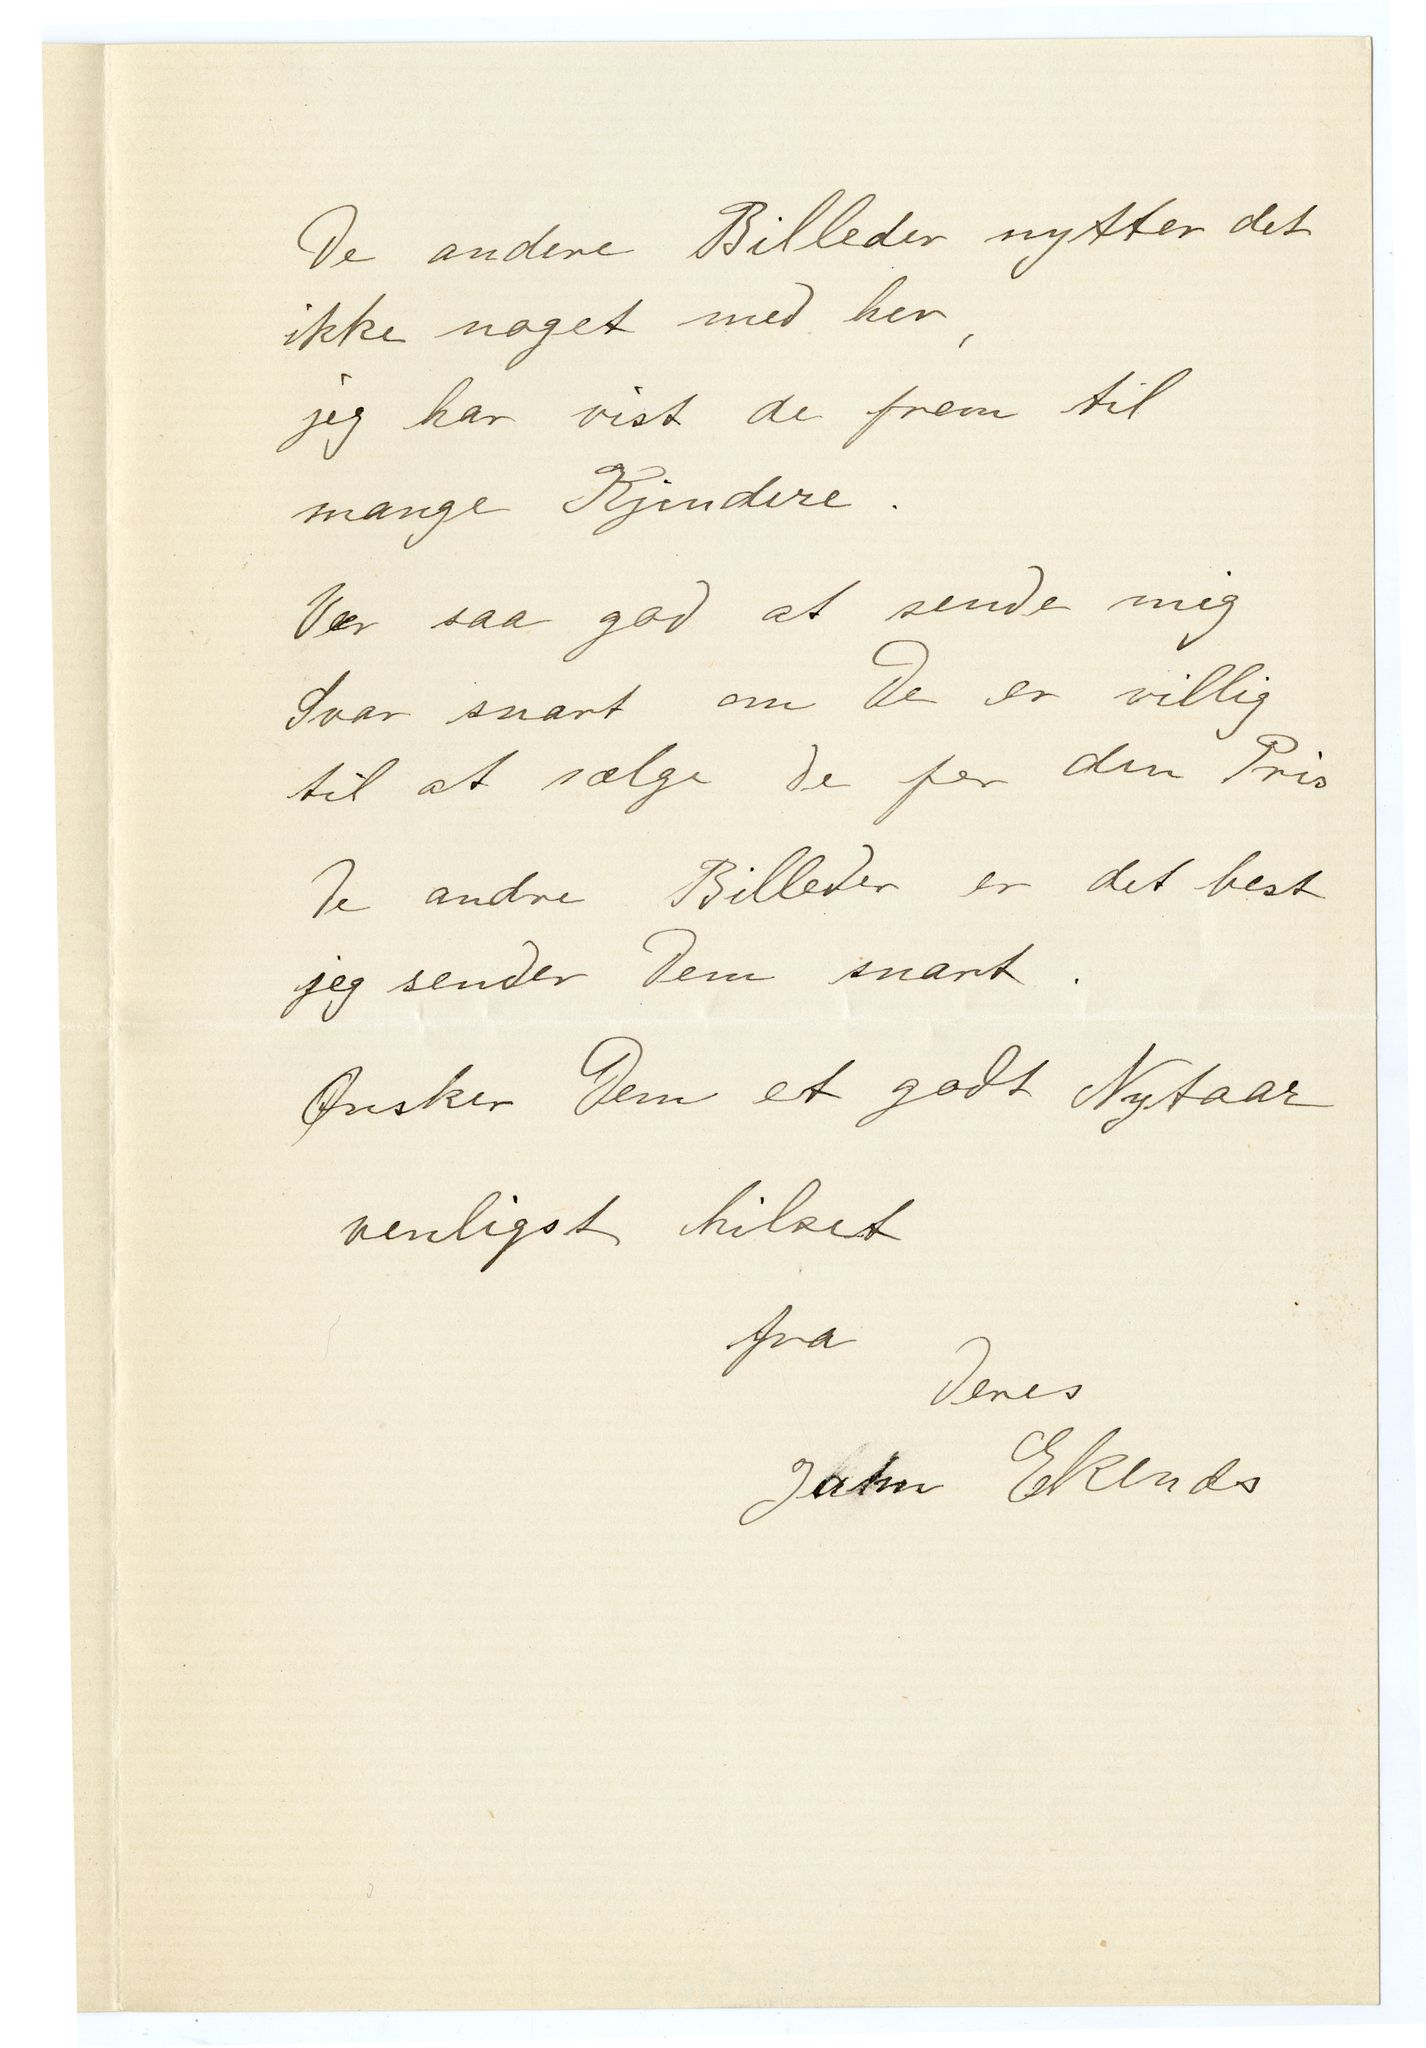 De andere Billeder nytter det
ikke noget med her,
jeg har vist de frem til
mange Kjendere.
Vær saa god at sende mig
Svar snart om De er villig
til at sælge de per den Pris
De andre Billeder er det best
jeg sender Dem snart.
Ønsker Dem et godt Nytaar
venligst hilset
fra
Deres
John Ekends